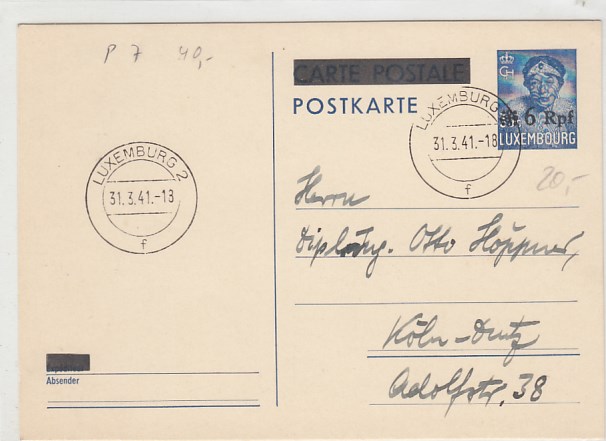 P 7 40,-
CARTE POSTALE
POSTKARTE
6 Rpf
LUXEMBOURG
LUXEMBURG 2
31.3.41.-18
f
LUXEMBURG 2
31.3.41.-18
f
20,-
Herrn
Dipl. Ing. Otto Höppner,
Köln-Deutz
Adolfstr. 38
Absender